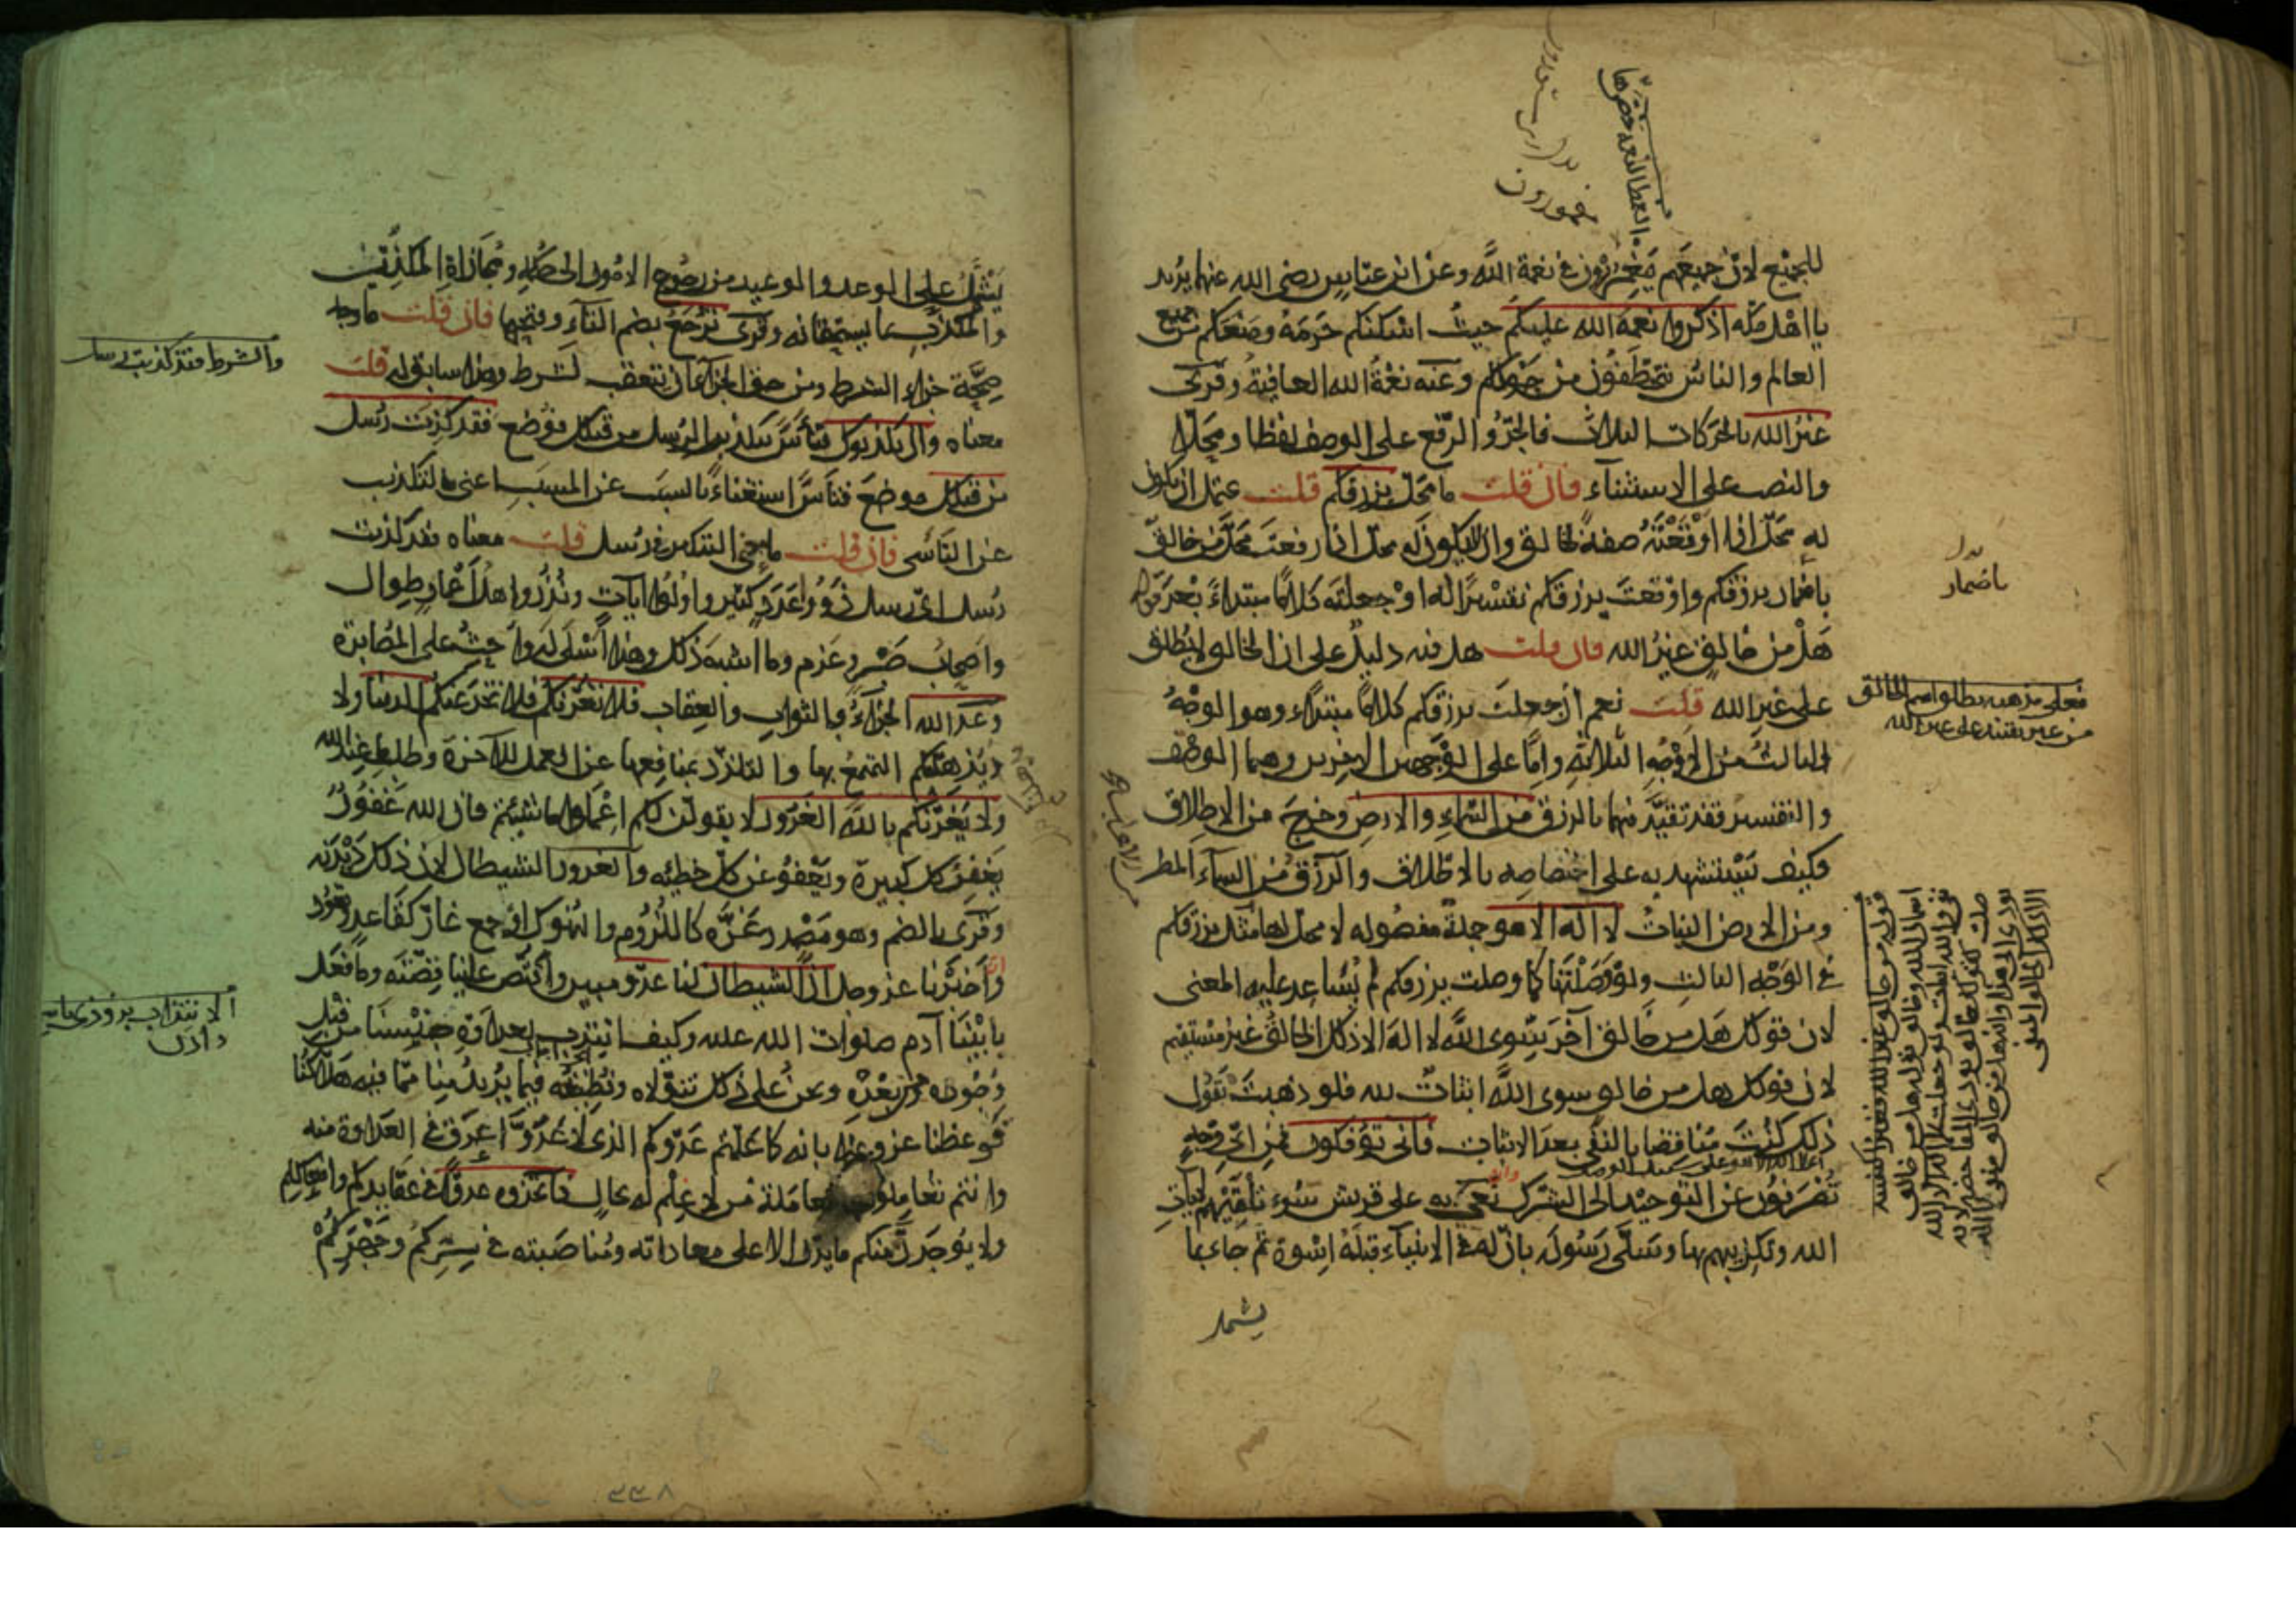 للجميع لان جميعهم مغمورون في نعمة الله وعن ابن عباس رضي الله عنهما يريد
يا اهل مكة اذكروا نعمة الله عليكم حيث اسكنكم حرمه ومنعكم من جميع
العالم والناس يتخطفون من حولكم وعنه نعمة الله العافية وقرئ
غير الله بالحركات الثلاث فالجر والرفع على الوصف لفظا ومحلا
والنصب على الاستثناء فان قلت ما محل يرزقكم قلت يحتمل ان يكون
له محل اذا اوقعته صفة لخالق وان لا يكون له محل اذا رفعت محل من خالق
باضمار يرزقكم واوقعت يرزقكم تفسيرا له او جعلته كلاما مبتداء بعد قوله
هل من خالق غير الله فان قلت هل فيه دليل على ان الخالق لا يطلق
على غير الله قلت نعم ان جعلت يرزقكم كلاما مبتداء وهو الوجه
الثالث من الاوجه الثلاثة واما على الوجهين الاخرين وهما الوصف
والتفسير فقد تقيد فيهما بالرزق من السماء والارض وخرج من الاطلاق
فكيف يستشهد به على اختصاصه بالاطلاق والرزق من السماء المطر
ومن الارض النبات لا اله الا هو جملة مفصولة لا محل لها مثل يرزقكم
في الوجه الثالث ولو وصلتها كما وصلت يرزقكم لم يساعد عليه المعنى
لان قولك هل من خالق آخر سوى الله لا اله الا ذلك الخالق غير مستقيم
لان قولك هل من خالق سوى الله اثبات لله فلو ذهبت تقول
ذلك كنت مناقضا بالنفي بعد الاثبات فانى تؤفكون فمن اي وجه
تصرفون عن التوحيد الى الشرك نعى به على قريش سوء تلقيهم لآيات
الله وتكذيبهم بها وسلى رسوله بان له في الانبياء قبله اسوة ثم جاء بما
يشتمل
باضمار
فعلى مذهبه يطلق اسم الخالق
من غير تقييد على غير الله
مغمورون
يشتمل على الوعد والوعيد من رجوع الامور الى حكمه ومجازاة المكذِّب
والمكذَّب بما يستحقانه وقرئ ترجع بضم التاء وفتحها فان قلت ما وجه
صحة جزاء الشرط ومن حق الجزاء ان يتعقب الشرط وهذا سابق له قلت
معناه وان يكذبوك فتأس بتكذيب الرسل من قبلك فوضع فقد كذبت رسل
من قبلك موضع فتأس استغناء بالسبب عن المسبب اعنى بالتكذيب
عن التأسى فان قلت ما معنى التنكير في رسل قلت معناه فقد كذبت
رسل اي رسل ذوو عدد كثير واولوا آيات ونذر واهل اعمار طوال
واصحاب صبر وعزم وما اشبه ذلك وهذا اسلى له واحث على المصابرة
وعد الله الجزاء بالثواب والعقاب فلا تغرنكم فلا تخدعنكم الدنيا ولا
يذهلنكم التمتع بها والتلذذ بمنافعها عن العمل للآخرة وطلب ما عند الله
ولا يغرنكم بالله الغرور لا يقولن لكم اعملوا ما شئتم فان الله غفور
يغفر كل كبيرة ويعفو عن كل خطيئة والغرور الشيطان لان ذلك ديدنه
وقرئ بالضم وهو مصدر غره كاللزوم والنهوك او جمع غار كقاعد وقعود
واخبرنا عز وجل ان الشيطان لنا عدو مبين واقتص علينا قصته وما فعل
بابينا آدم صلوات الله عليه وكيف انتدب لعداوة جنسنا من قبل
وجوده ومن بعده ونحن على ذلك نتولاه ونطيعه فيما يريد منا مما فيه هلاكنا
فوعظنا عز وعلا بانه كما علمتم عدوكم الذي لا عدو اعرق في العداوة منه
وانتم تعاملونه معاملة من لا علم له بحاله فاتخذوه عدوا في عقايدكم وافعالكم
ولا يوجدن منكم ما يدل الا على معاداته ومناصبته في سركم وجهركم
والشرط فقد كذبت رسل
٢٣٨